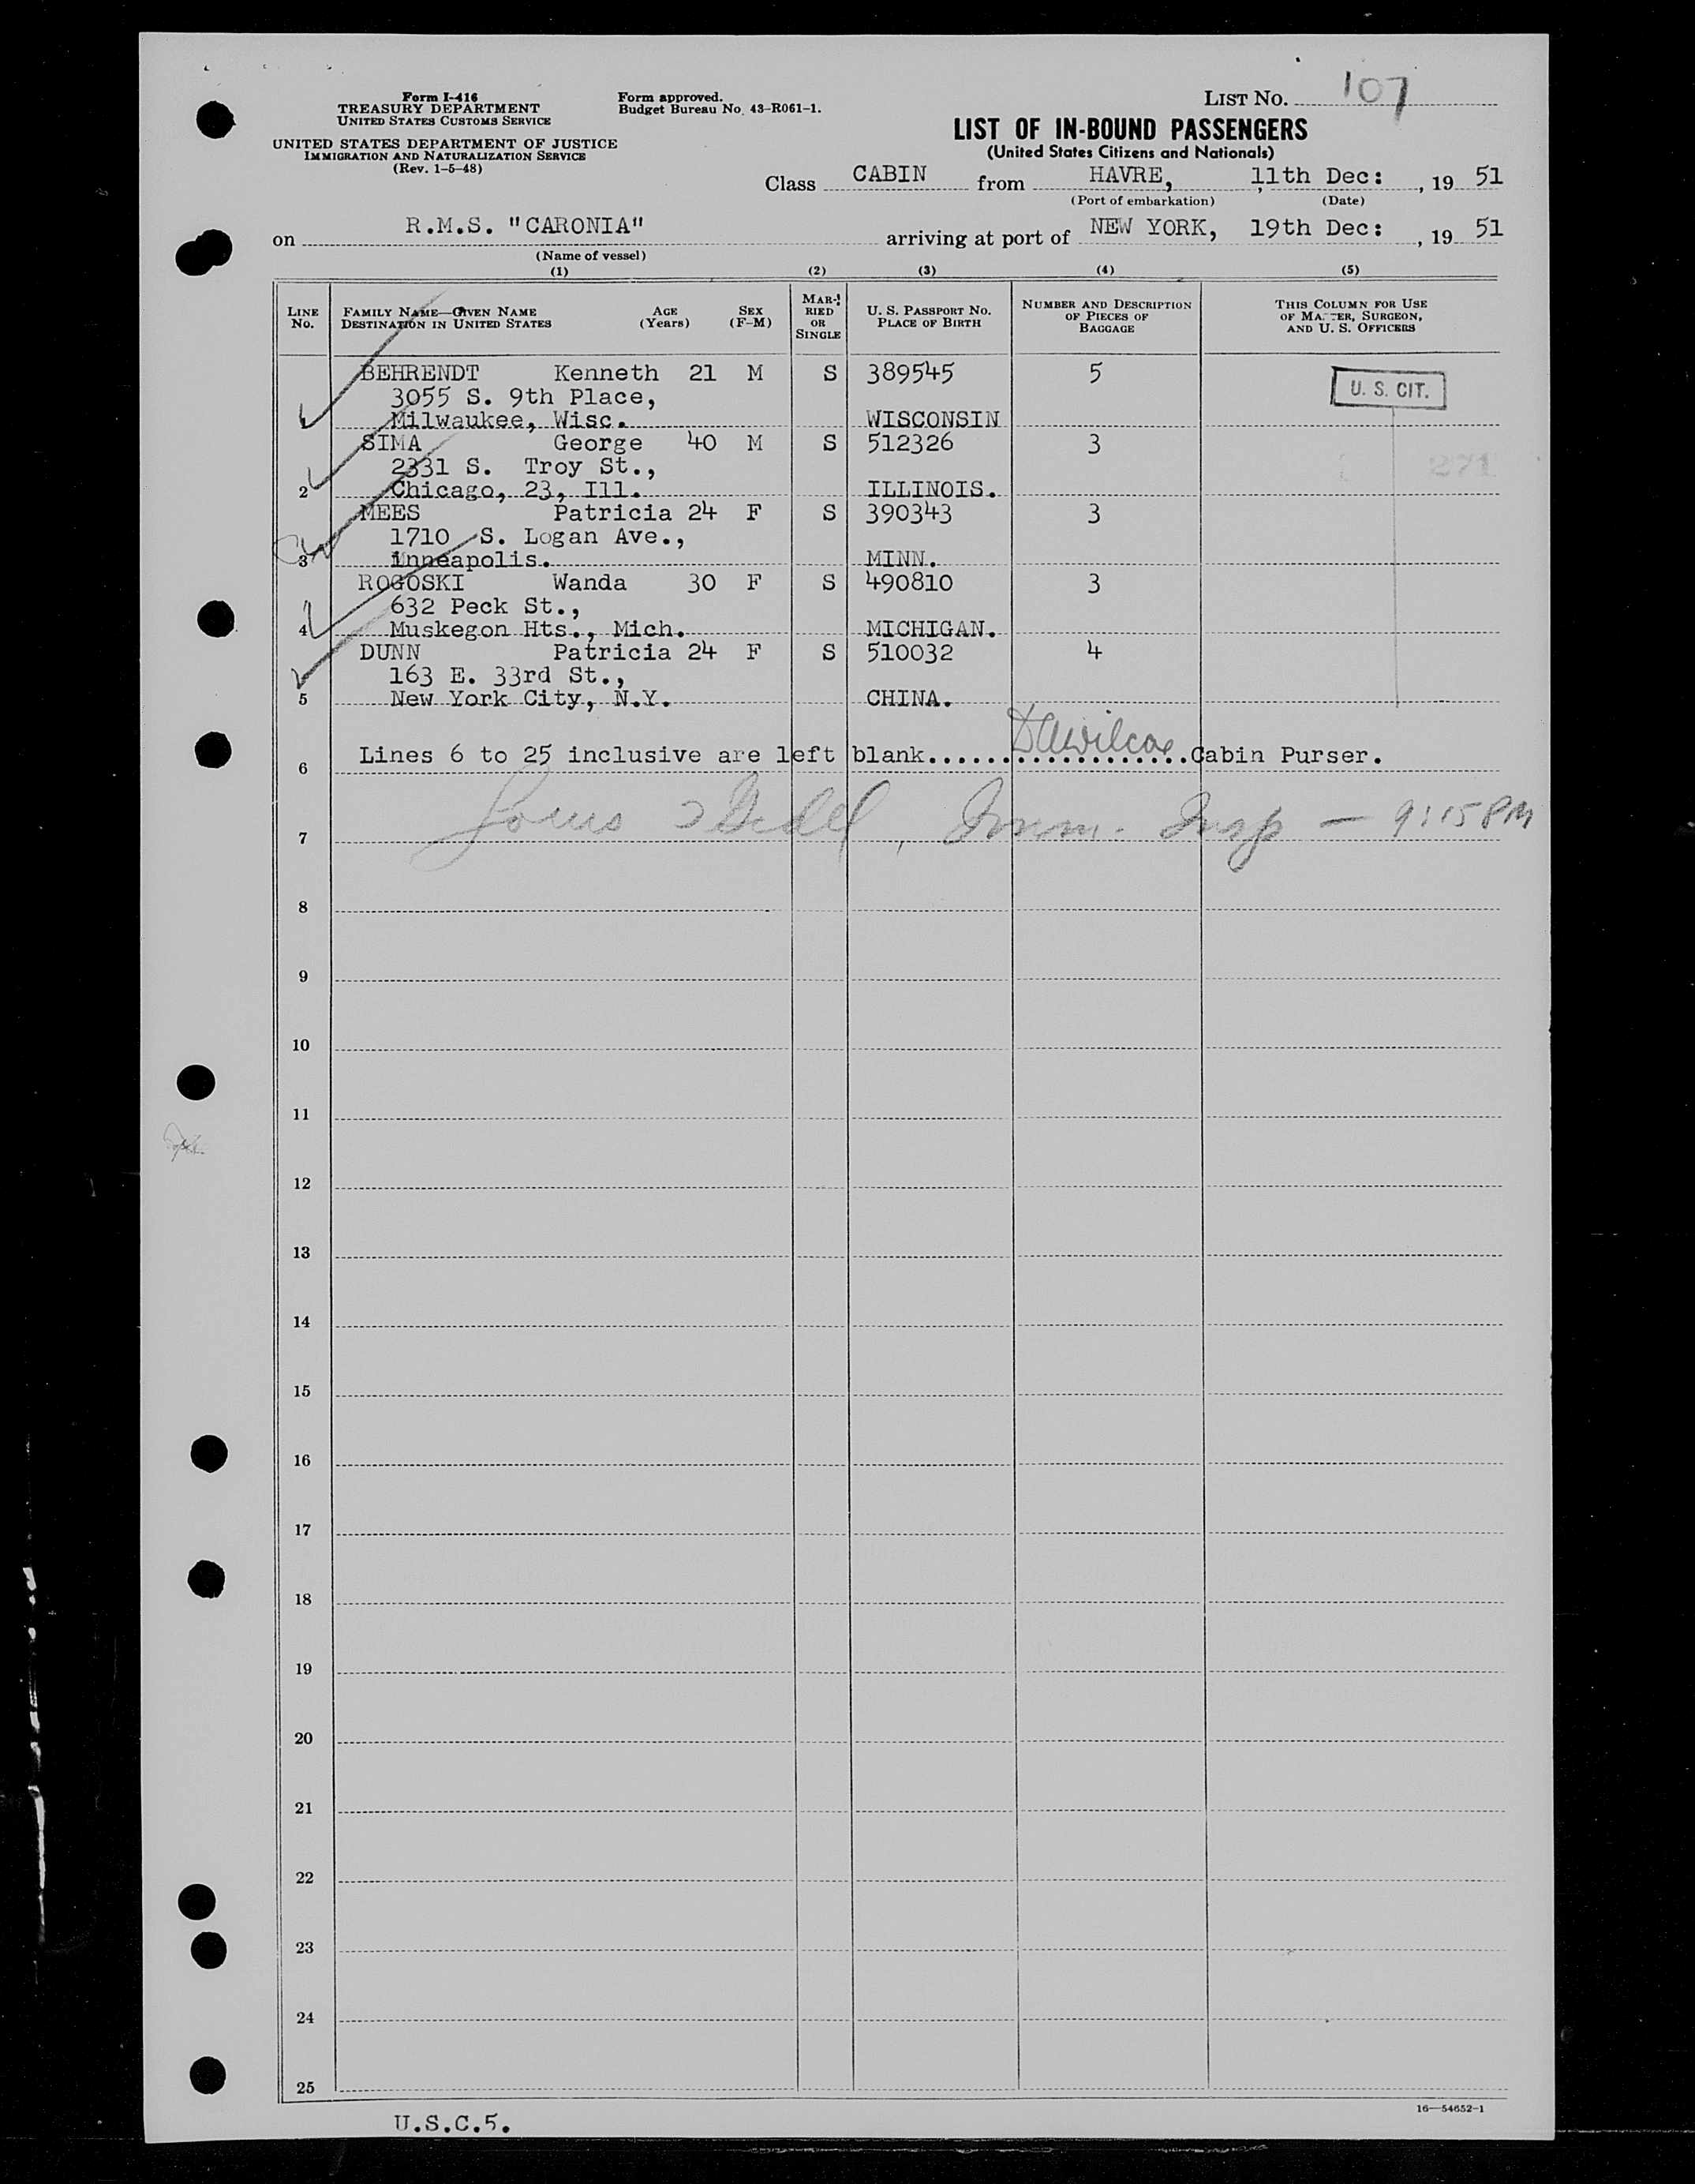 Form I-416
TREASURY DEPARTMENT
UNITED STATES CUSTOMS SERVICE
UNITED STATES DEPARTMENT OF JUSTICE
IMMIGRATION AND NATURALIZATION SERVICE
(Rev. 1-5-48)
Form approved.
Budget Bureau No. 43-R061-1.
LIST NO. 107
LIST OF IN-BOUND PASSENGERS
(United States Citizens and Nationals)
Class CABIN from HAVRE, 11th Dec: , 19 51
(Port of embarkation) (Date)
on R.M.S. "CARONIA" arriving at port of NEW YORK, 19th Dec: , 19 51
(Name of vessel)
(1) (2) (3) (4) (5)
LINE No. FAMILY NAME—GIVEN NAME DESTINATION IN UNITED STATES AGE (Years) SEX (F-M) MARRIED OR SINGLE U. S. PASSPORT NO. PLACE OF BIRTH NUMBER AND DESCRIPTION OF PIECES OF BAGGAGE THIS COLUMN FOR USE OF MASTER, SURGEON, AND U. S. OFFICERS
BEHRENDT Kenneth 21 M S 389545 5 U. S. CIT.
3055 S. 9th Place,
Milwaukee, Wisc. WISCONSIN
SIMA George 40 M S 512326 3
2331 S. Troy St., 271
2 Chicago, 23, Ill. ILLINOIS.
MEES Patricia 24 F S 390343 3
1710 S. Logan Ave.,
3 inneapolis. MINN.
ROGOSKI Wanda 30 F S 490810 3
632 Peck St.,
4 Muskegon Hts., Mich. MICHIGAN.
DUNN Patricia 24 F S 510032 4
163 E. 33rd St.,
5 New York City, N.Y. CHINA.
6 Lines 6 to 25 inclusive are left blank................... DAWilcox Cabin Purser.
7 Imm. Insp — 9:15 PM
8
9
10
11
12
13
14
15
16
17
18
19
20
21
22
23
24
25
16—54652-1
U.S.C.5.